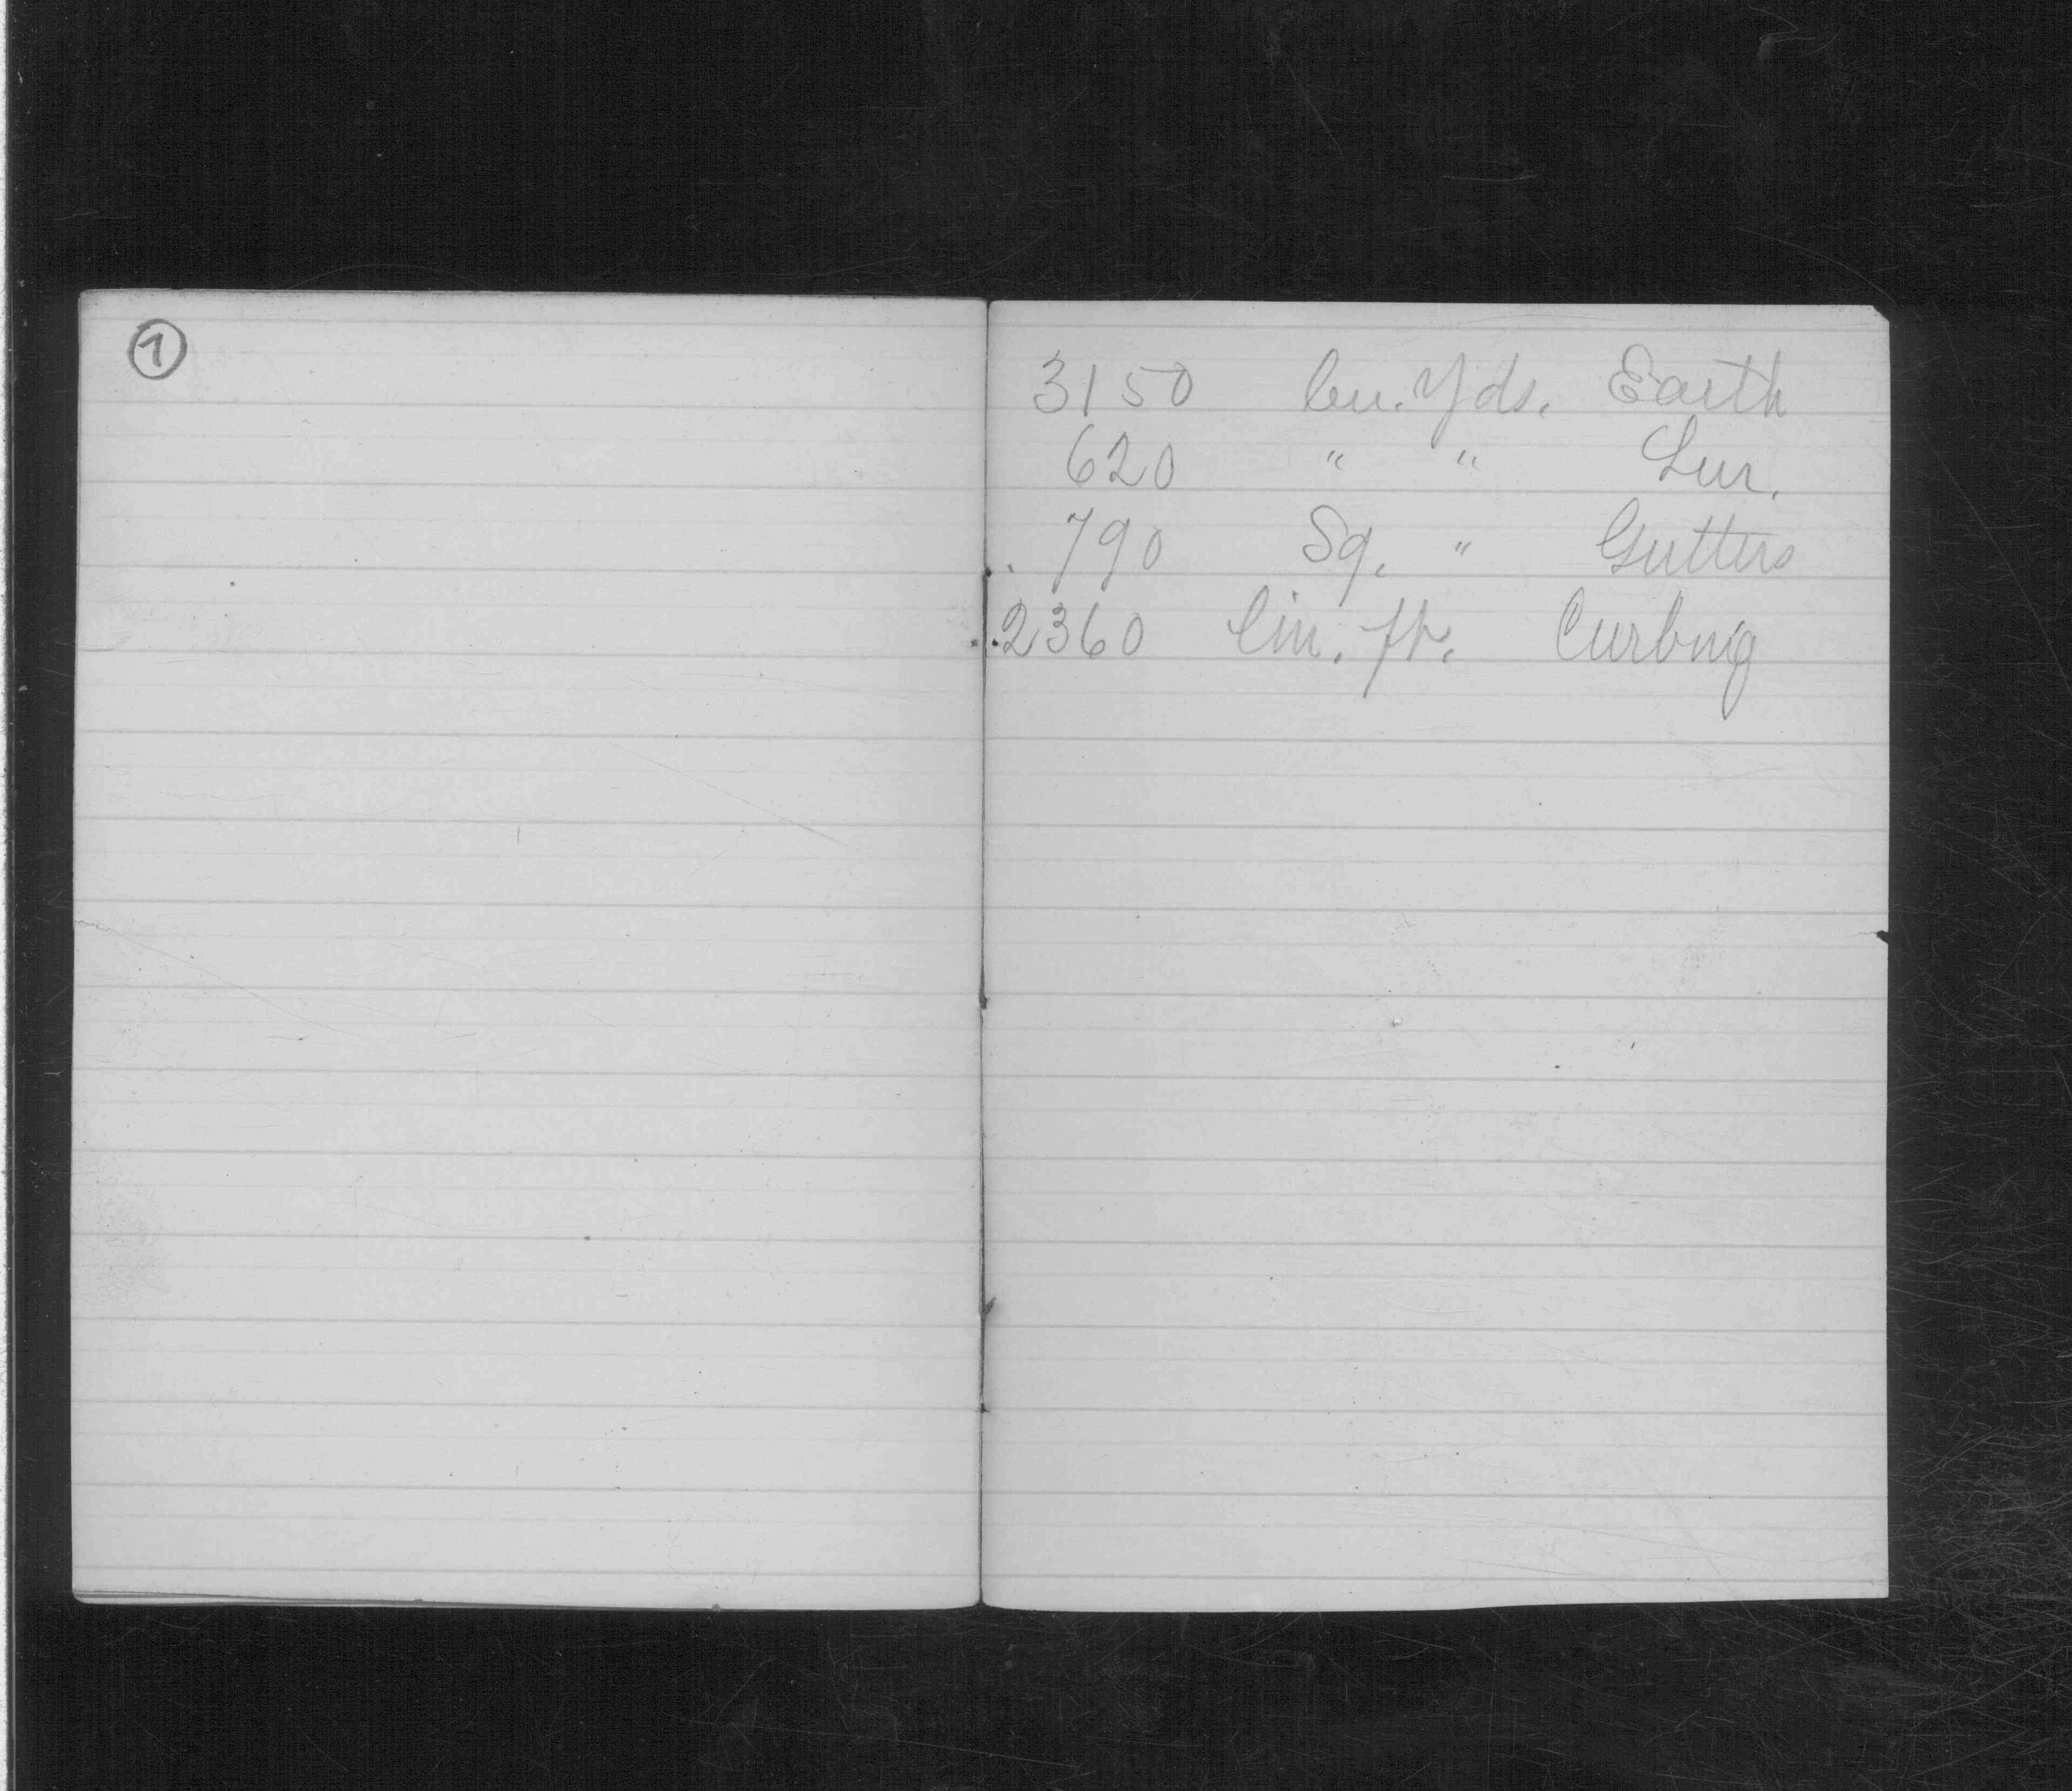 1
3150 Cu. Yds. Earth
620 " " Sur.
790 Sq. " Gutters
2360 Lin. ft. Curbing